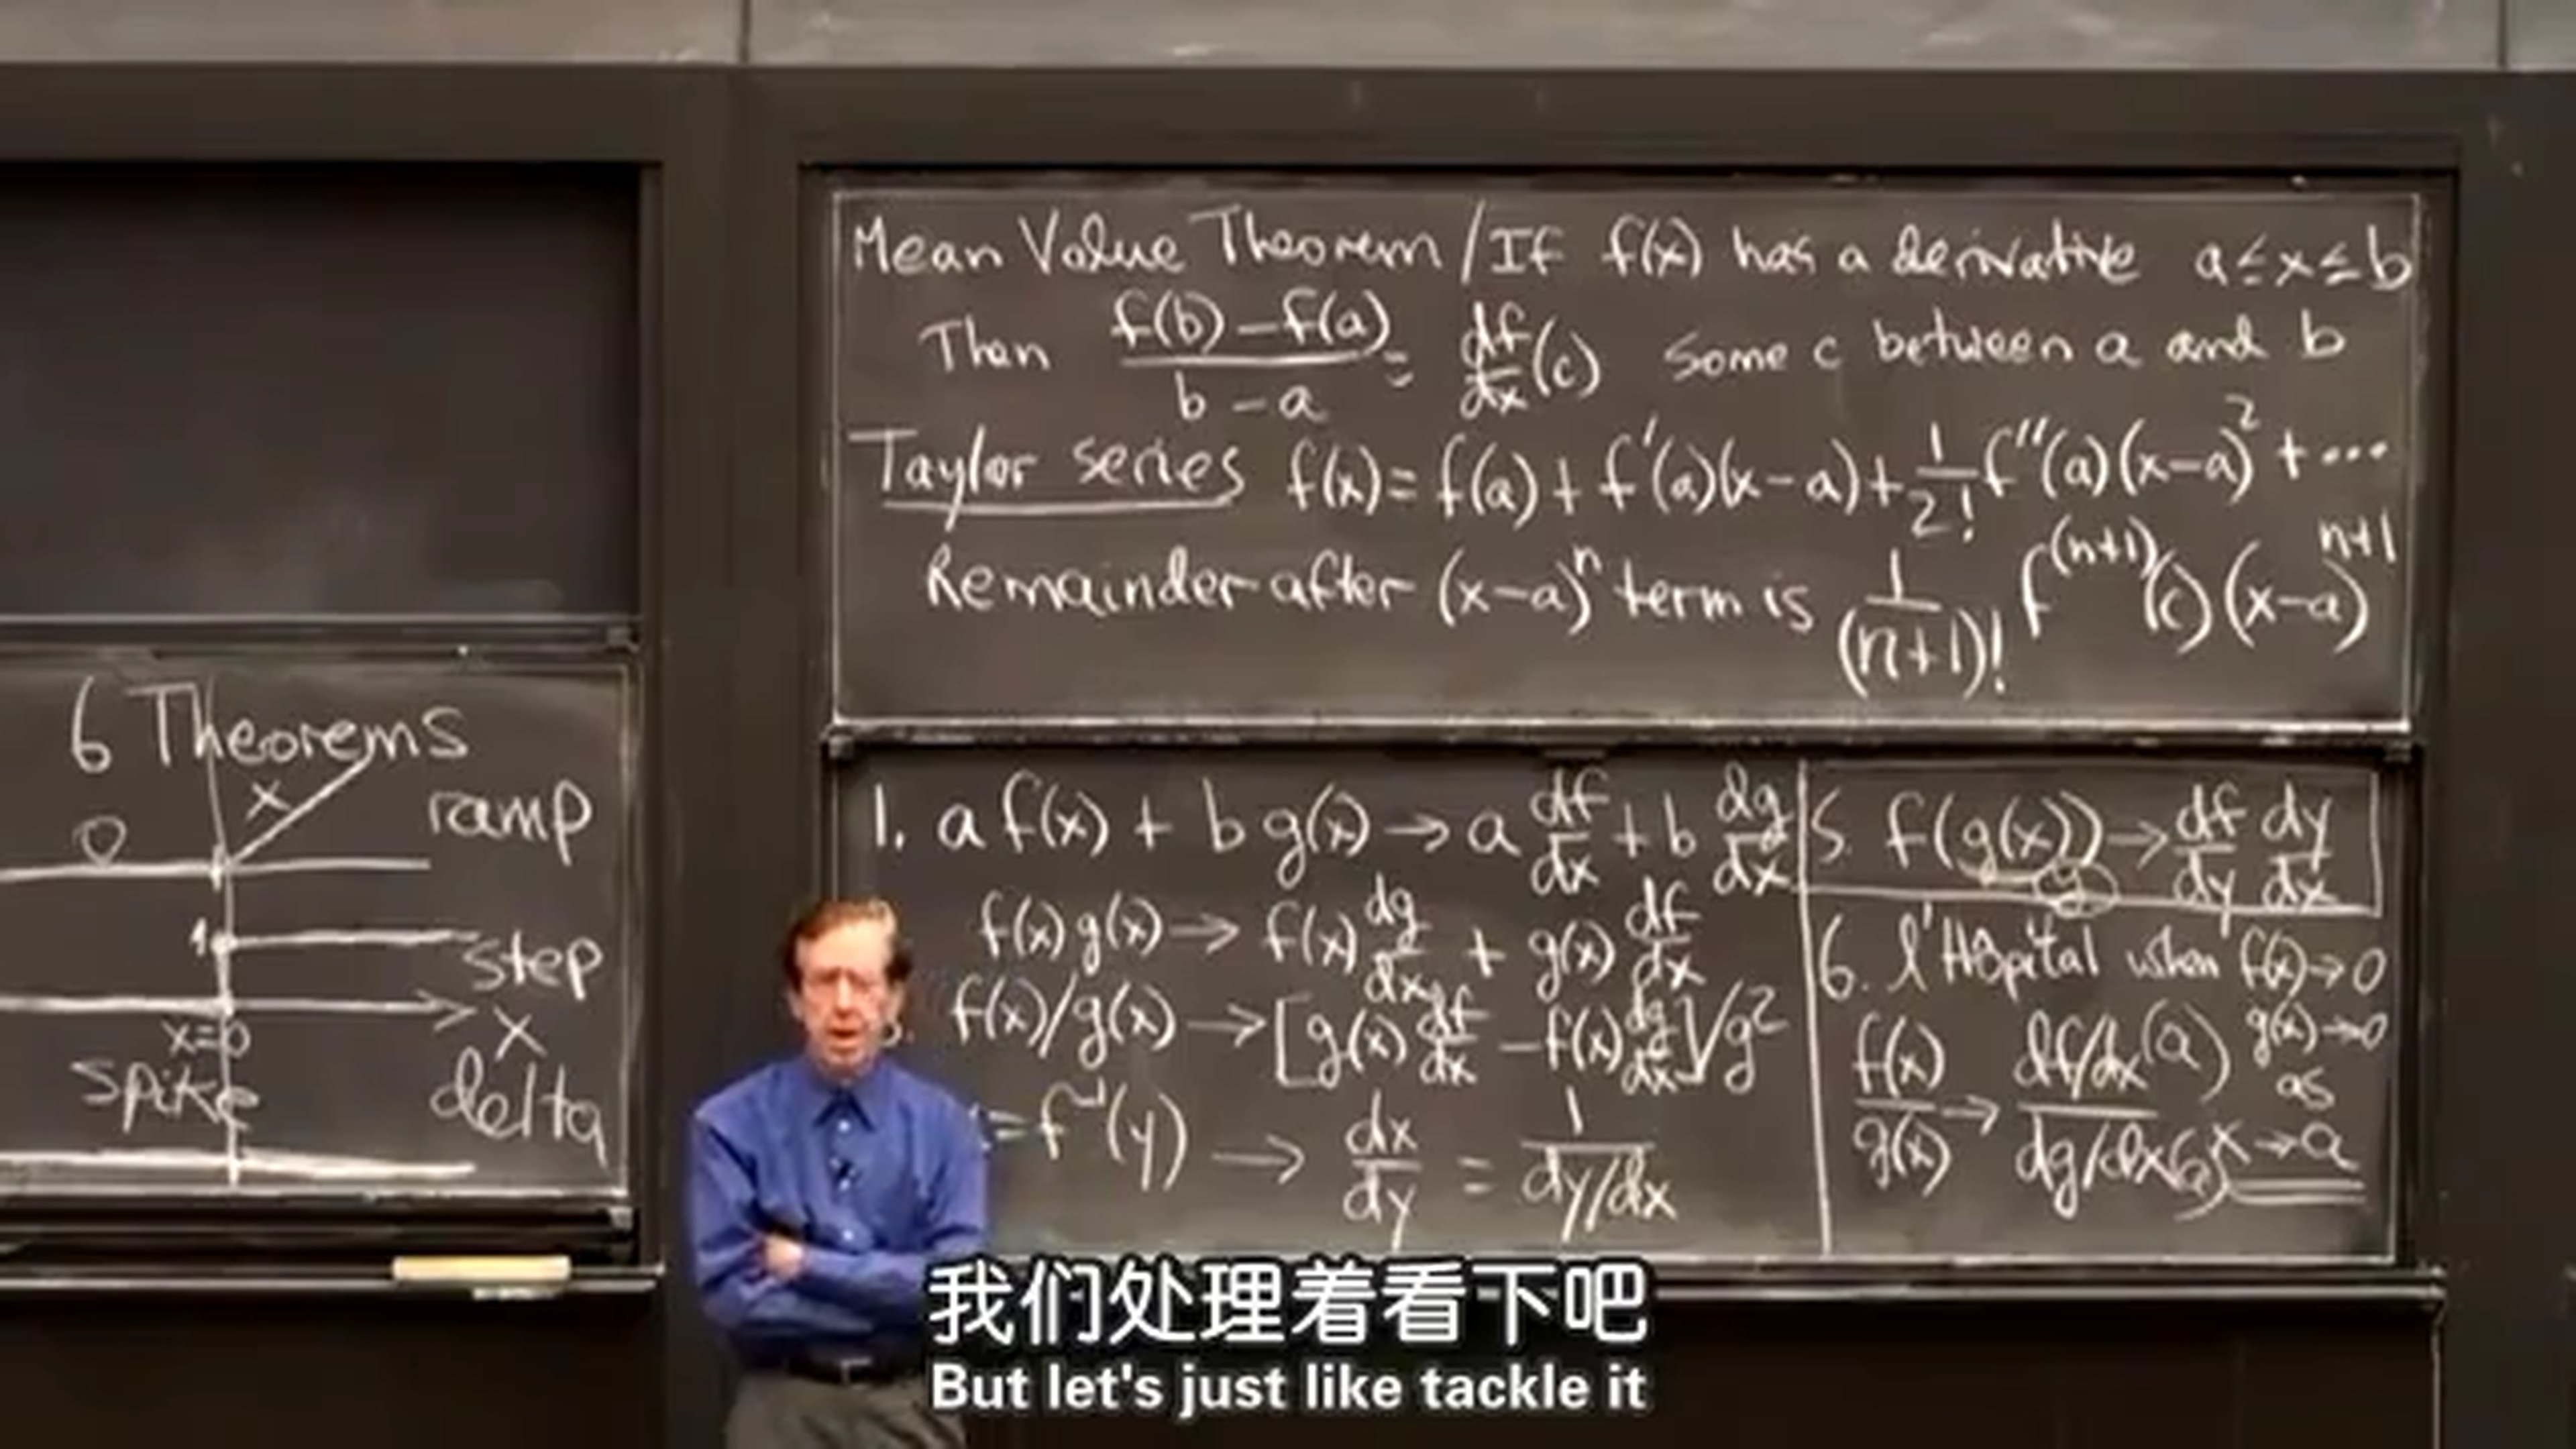 6 Theorems
0 x ramp
1 step
x=0 x
spike delta
Mean Value Theorem / If f(x) has a derivative a≤x≤b
Then (f(b)-f(a))/(b-a) = df/dx(c) some c between a and b
Taylor series f(x)=f(a)+f'(a)(x-a)+1/2! f''(a)(x-a)²+...
Remainder after (x-a)ⁿ term is 1/(n+1)! f⁽ⁿ⁺¹⁾(c)(x-a)ⁿ⁺¹
1. a f(x) + b g(x) → a df/dx + b dg/dx
f(x)g(x) → f(x) dg/dx + g(x) df/dx
f(x)/g(x) → [g(x) df/dx - f(x) dg/dx]/g²
=f⁻¹(y) → dx/dy = 1/(dy/dx)
5. f(g(x)) → df/dy dy/dx
y
6. l'Hôpital when f(x)→0
g(x)→0
f(x)/g(x) → df/dx(a)/dg/dx(a) as
x→a
我们处理着看下吧
But let's just like tackle it